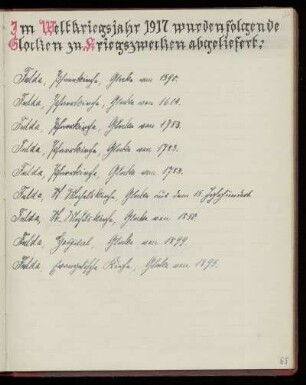 Im Weltkriegsjahr 1917 wurden folgende
Glocken zu Kriegszwecken abgeliefert:
Fulda, Pfarrkirche, Glocke von
Fulda, Pfarrkirche, Glocke von
Fulda, Pfarrkirche, Glocke von 1783.
Fulda, Pfarrkirche, Glocke von 1783.
Fulda, Pfarrkirche, Glocke von 1783.
Fulda, Kirche, Glocke aus dem 15. Jahrhundert
Fulda, Kirche, Glocke von
Fulda, Hospital, Glocke von 1899.
Fulda, evangelische Kirche, Glocke von 1895.